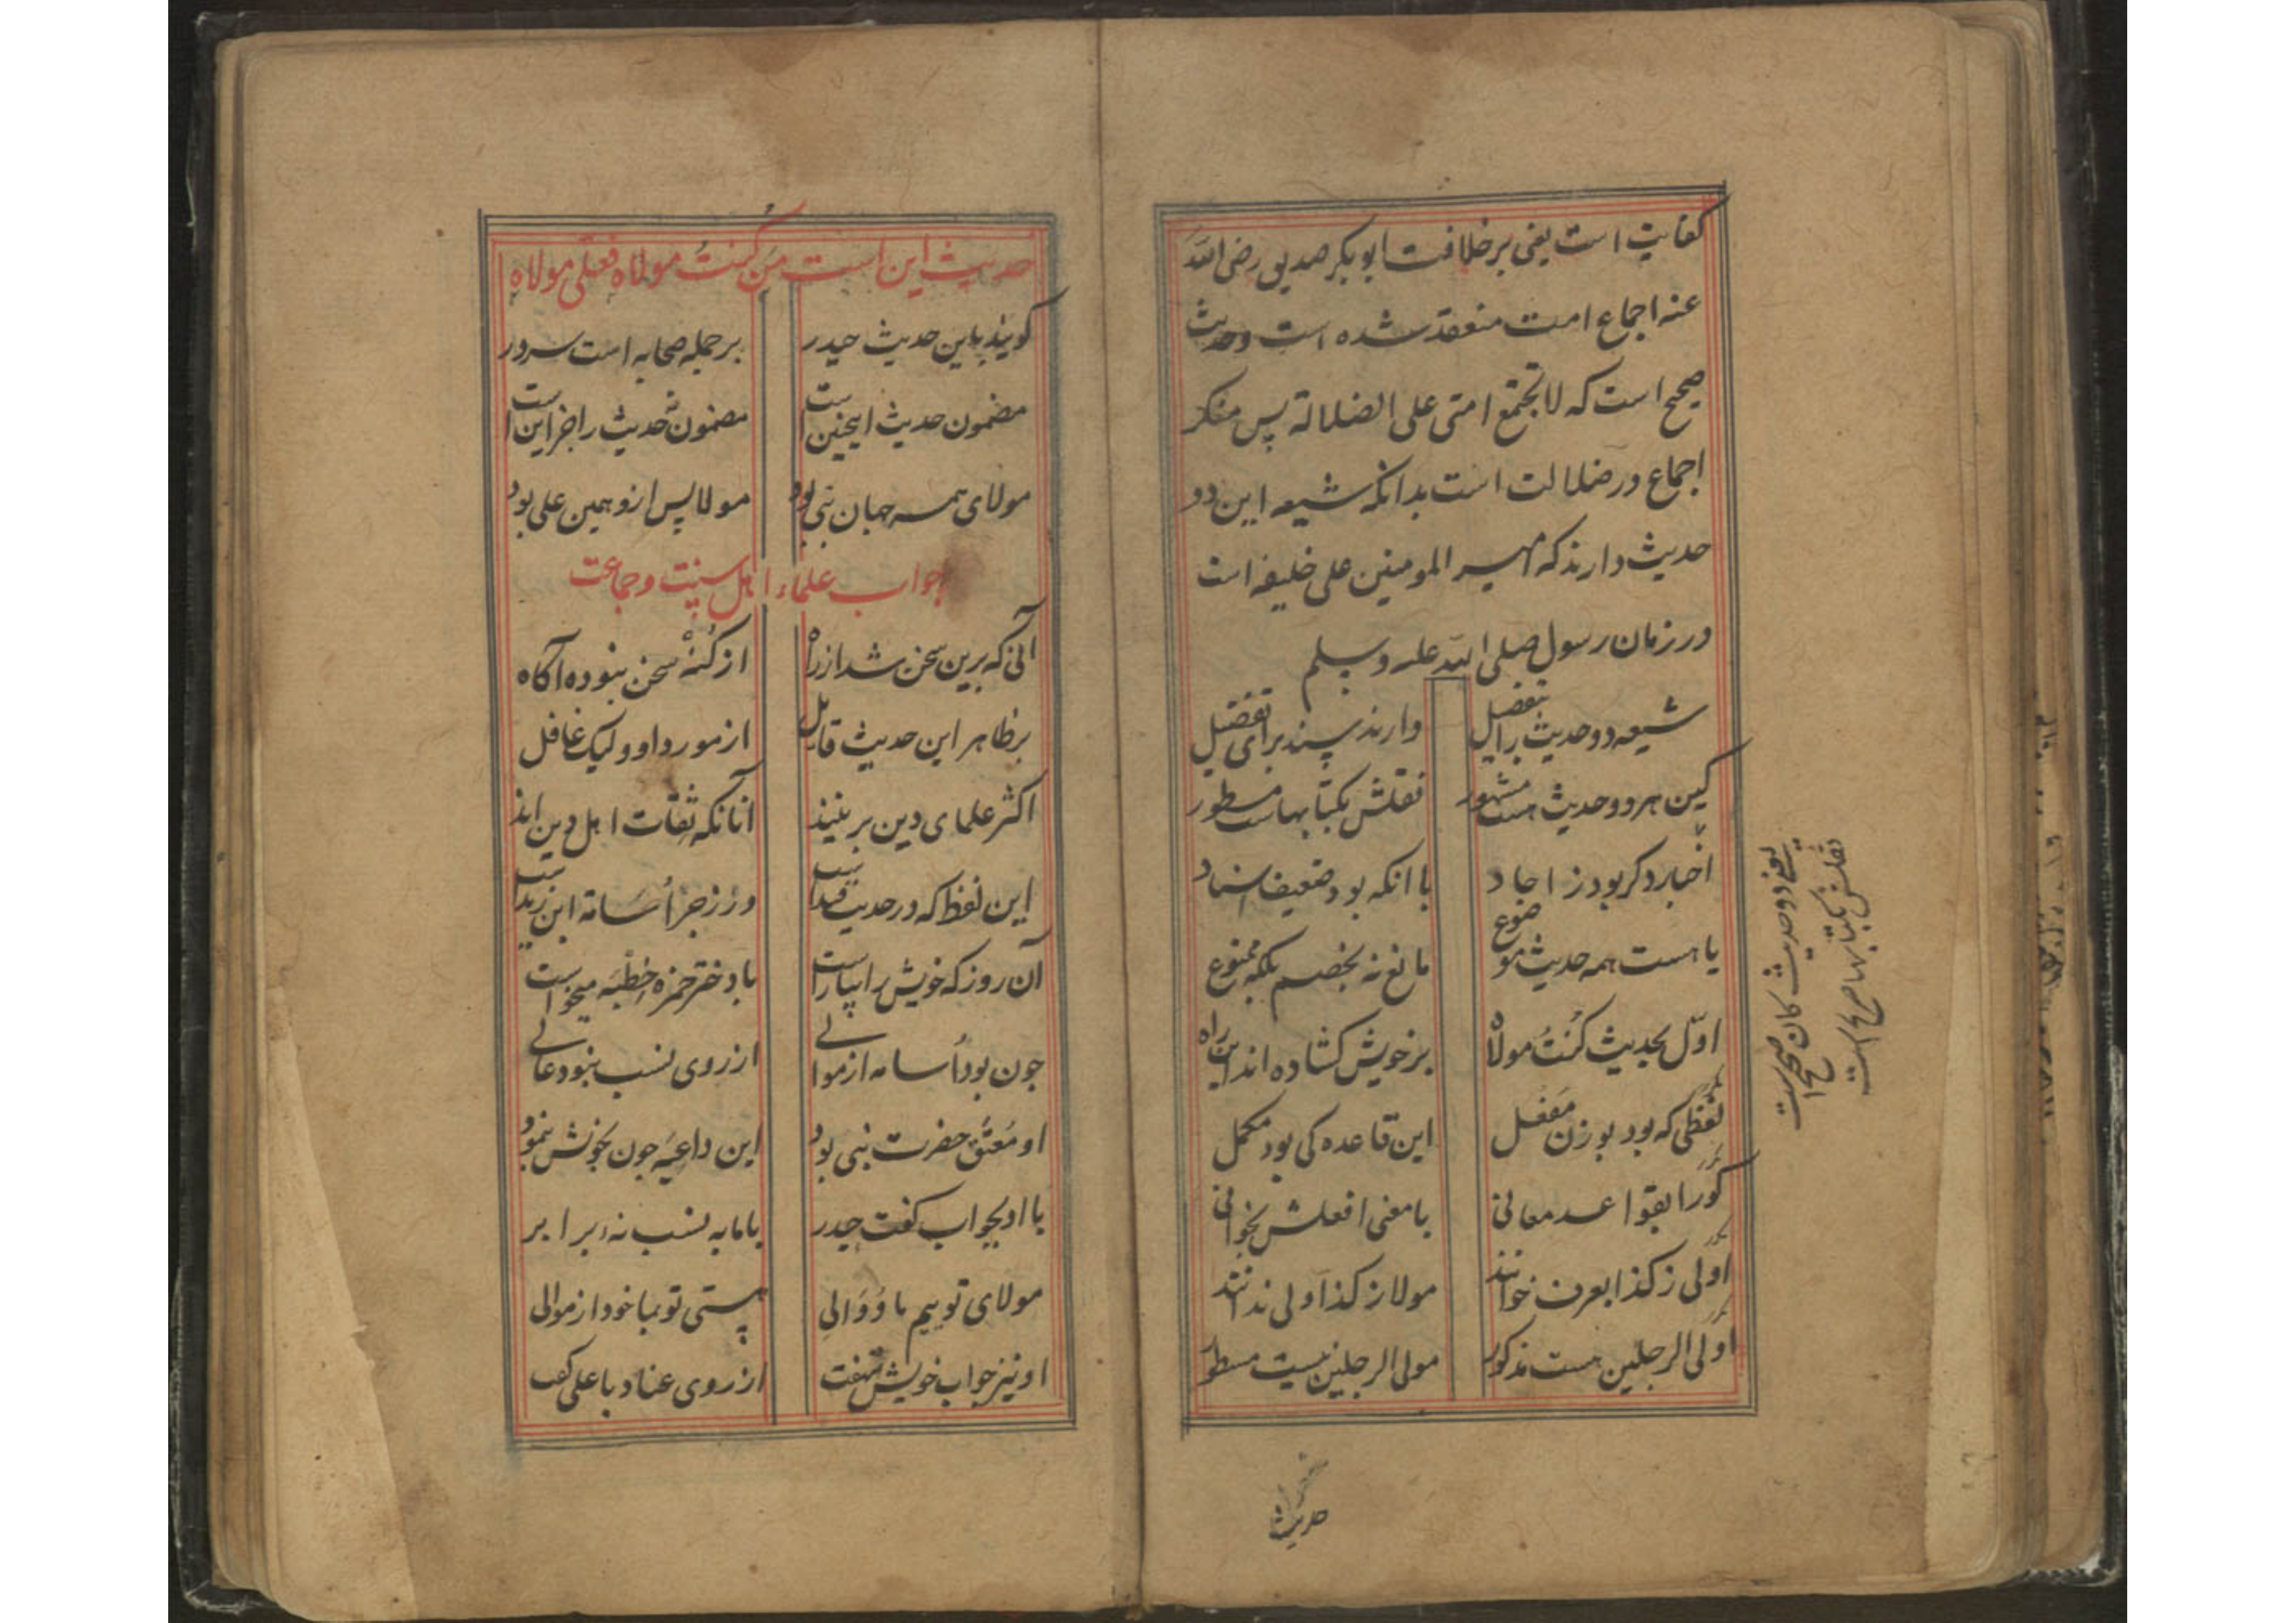 کفایت است یعنی بر خلافت ابو بکر صدیق رضی الله
عنه اجماع امت منعقد شده است و حدیث
صحیح است که لا تجتمع امتی علی الضلالة پس منکر
اجماع در ضلالت است بدانکه شیعه این دو
حدیث دارند که امیر المومنین علی خلیفه است
در زمان رسول صلی الله علیه وسلم
شیعه دو حدیث را بتفضیل دارند پسند برای تفضیل
کین هر دو حدیث هست مشهور نقلش بکتابها مسطور
اخبار دکر بود ز احاد با انکه بود ضعیف اسناد
یا هست همه حدیث موضوع مانع نه بخصم بلکه ممنوع
اوّل بحدیث کُنتُ مولاهْ بر خویش کشاده اند این راه
لفظی که بود بوزن مَفعَل این قاعده کی بود مکمل
کورا بقواعد معانی با معنی افعلش بخوانی
اَولی ز کذا بعرف خوانند مولا ز کذا اولی ندانند
اولی الرجلین هست مذکور مولی الرجلین نیست مسطور
یعنی دو حدیث کان صحیح است
نقلش بکتابها صریح است
حدیث
حدیث این است مَن کُنتُ مولاه فعلی مولاه
کویند باین حدیث حیدر بر جمله صحابه است سرور
مضمون حدیث اینچنین است مضمون نه حدیث را جز این است
مولای همه جهان نبی بود مولا پس ازو همین علی بود
جواب علماء اهل سنت و جماعت
آنی که برین سخن شد از راه از کُنْه سخن نبوده آکاه
بر ظاهر این حدیث قایل از مورد او ولیک غافل
اکثر علمای دین بر ینند آنانکه ثقات اهل دین اند
این لفظ که در حدیث قیدست در زجر اُسامة ابن زیدست
آن روز که خویش را بیاراست با دختر حمزه خِطْبَه میخواست
جون بود اُسامه از موالے از روی نسب نبود عالے
او مُعتَق حضرت نبی بود این داعیَه جون بخویش بنمود
با او بجواب کفت حیدر با ما به نسب نه برابر
مولای توییم ما وَ وَالی هستی تو بما خود از موالی
او نیز جواب خویش بنهفت از روی عناد با علی کفت